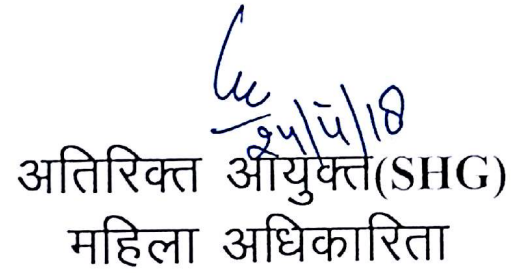 24/5/18
अतिरिक्त आयुक्त(SHG)
महिला अधिकारिता